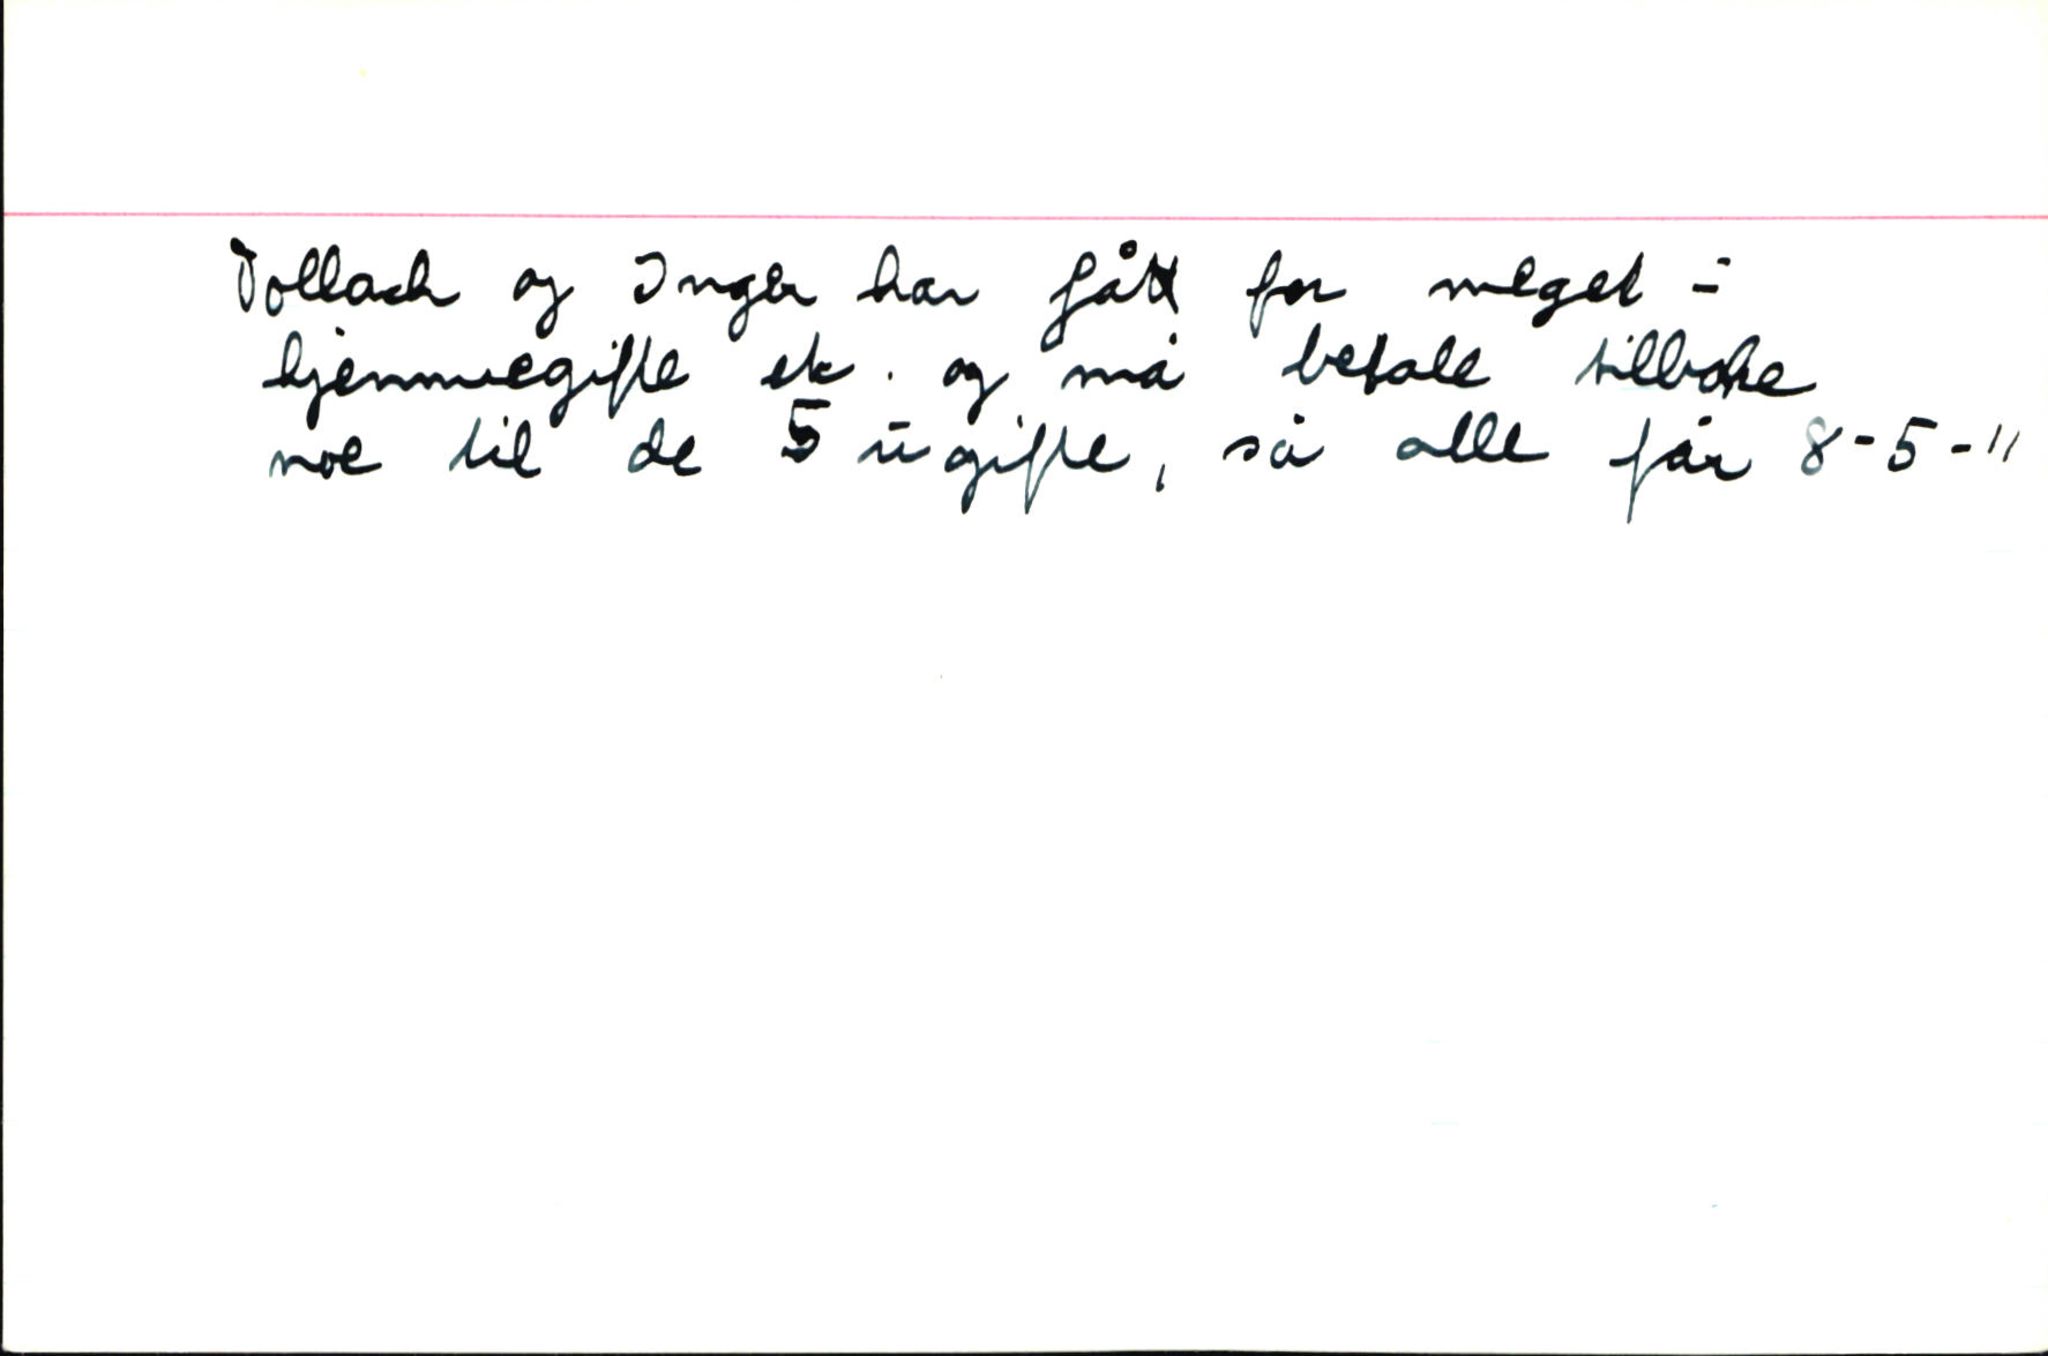 Tollach og Inger har fått for meget i
hjemmegifte etc. og må betale tilbake
noe til de 5 ugifte, så alle får 8-5-11